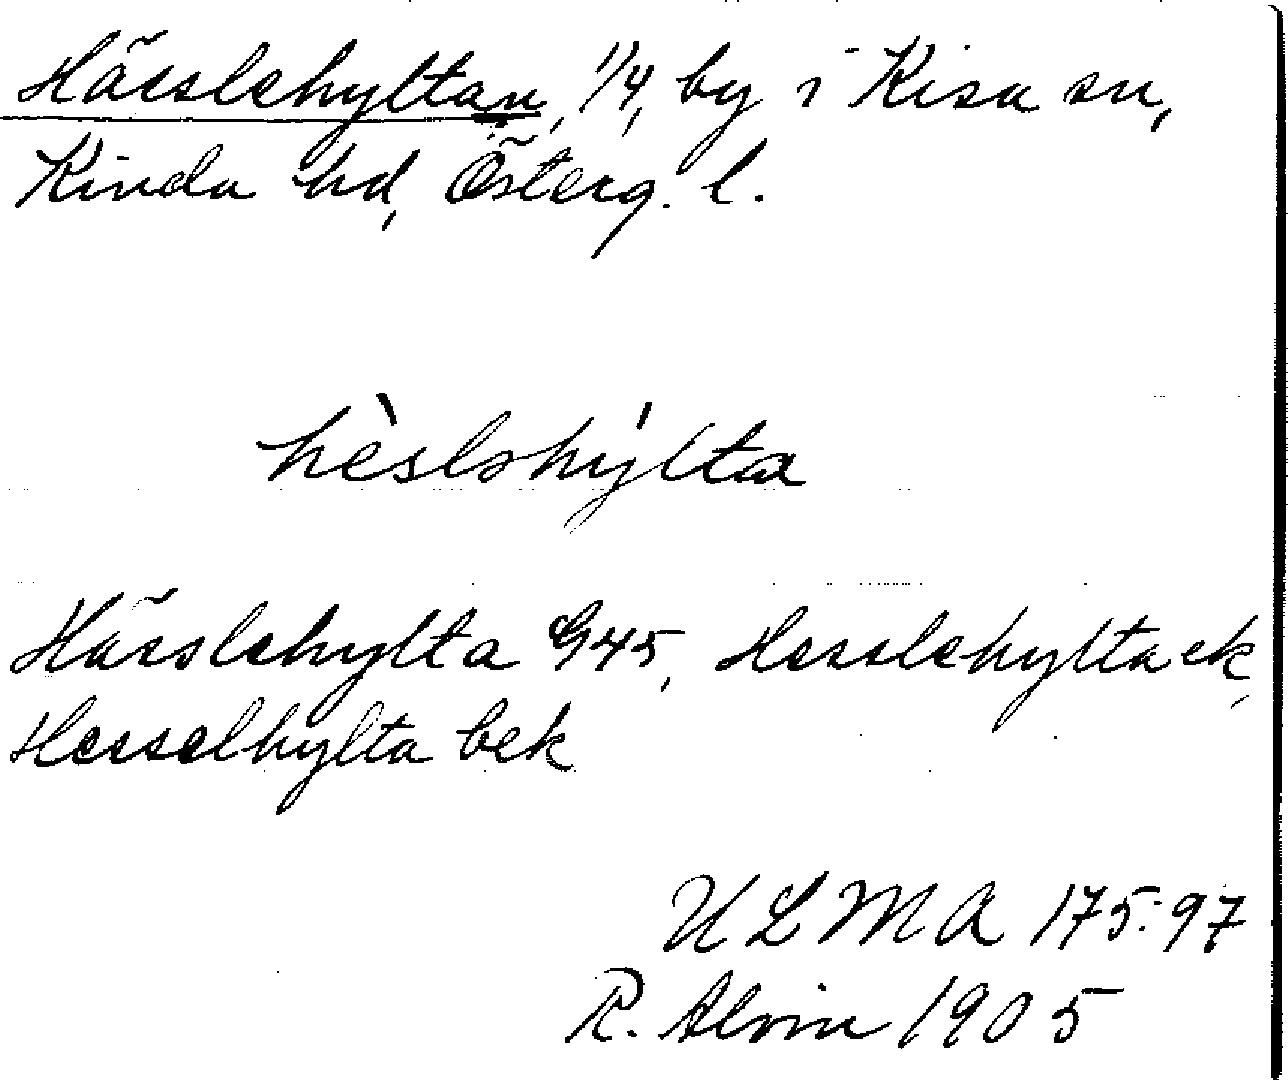 Hässlehyltan, 1/4, by i Kisa sn,
Kinda hd, Österg. l.
hèslǝhýlta
Hässlehylta G45, Hesslehylta ek,
Hesselhylta bek
ULMA 175:97
R. Alvin 1905